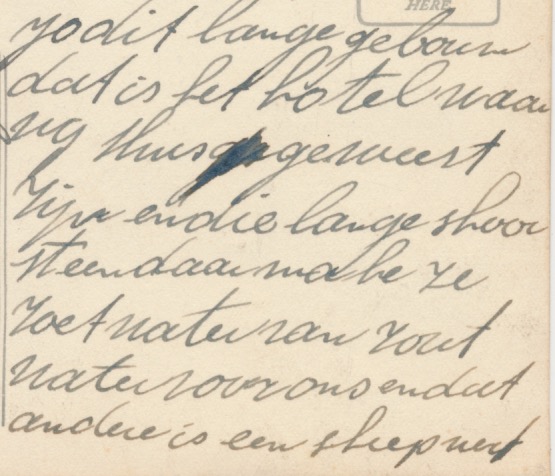 HERE
zo dit lange gebouw
dat is het hotel waar
wy thuis geweest
zijn en die lange shoor
steen daar make ze
zoet water van zout
water voor ons en dat
andere is een sheepwerf